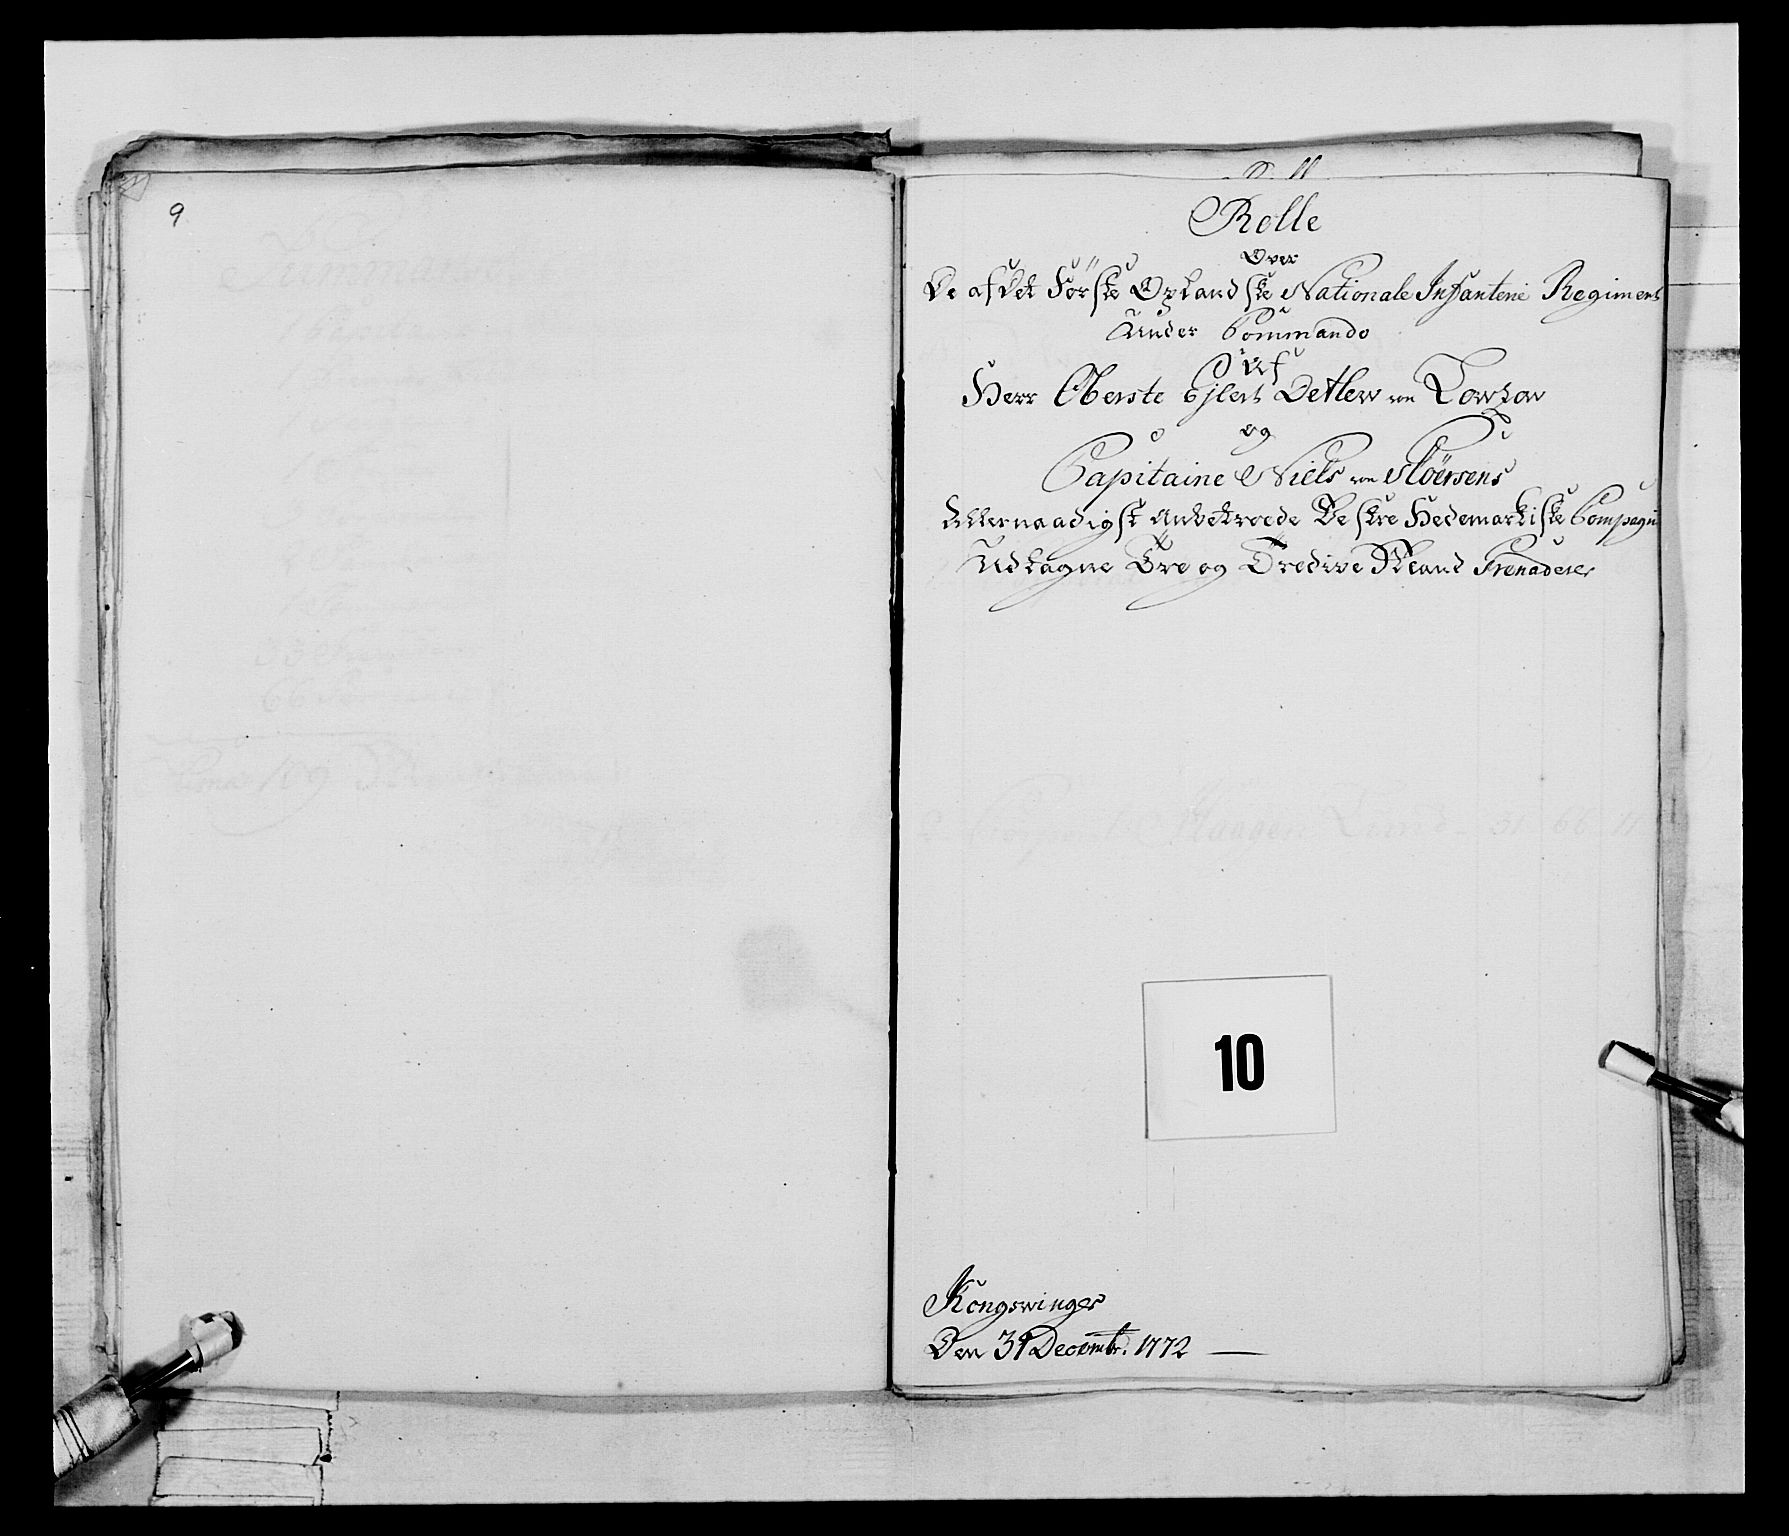 9
Rolle
Over
De af Det Første Oplandske Nationale Infanterie Regiment
Under Commando
Af
Herr Oberste Ejlert Detlew von Lowzow
og
Capitaine Niels von
Allernaadigst Anbetroede Vestre Hedemarkiske Compagni
Udtagne Tre og Tredive Mand Grenaderer
10
Kongswinger
Den 31 Decembr. 1772